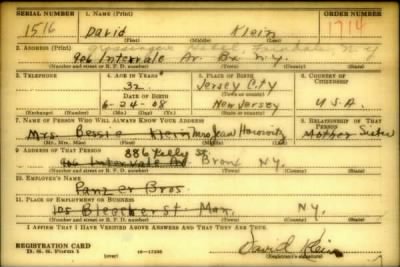 SERIAL NUMBER 1. NAME (Print) ORDER NUMBER
1516 David Klein 1714
(First) (Middle) (Last)
2. ADDRESS (Print)
Grossinger Hotel, Ferndale, N.Y
906 Intervale Av. Bx N.Y.
(Number and street or R. F. D. number) (Town) (County) (State)
3. TELEPHONE 4. AGE IN YEARS 5. PLACE OF BIRTH 6. COUNTRY OF CITIZENSHIP
32 Jersey City
DATE OF BIRTH
6-24-08 New Jersey U.S.A
(Exchange) (Number) (Mo.) (Day) (Yr.) (State or country)
7. NAME OF PERSON WHO WILL ALWAYS KNOW YOUR ADDRESS 8. RELATIONSHIP OF THAT PERSON
Mrs. Bessie Klein Mrs Jean Horowitz Mother Sister
(Mr., Mrs., Miss) (First) (Middle) (Last)
9. ADDRESS OF THAT PERSON 886 Kelly St
906 Intervale Av Bronx N.Y.
(Number and street or R. F. D. number) (Town) (County) (State)
10. EMPLOYER'S NAME
Panzer Bros.
11. PLACE OF EMPLOYMENT OR BUSINESS
105 Bleecker St Man. N.Y.
(Number and street or R. F. D. number) (Town) (County) (State)
I AFFIRM THAT I HAVE VERIFIED ABOVE ANSWERS AND THAT THEY ARE TRUE.
REGISTRATION CARD
D. S. S. Form 1 (over) David Klein
(Registrant's signature)